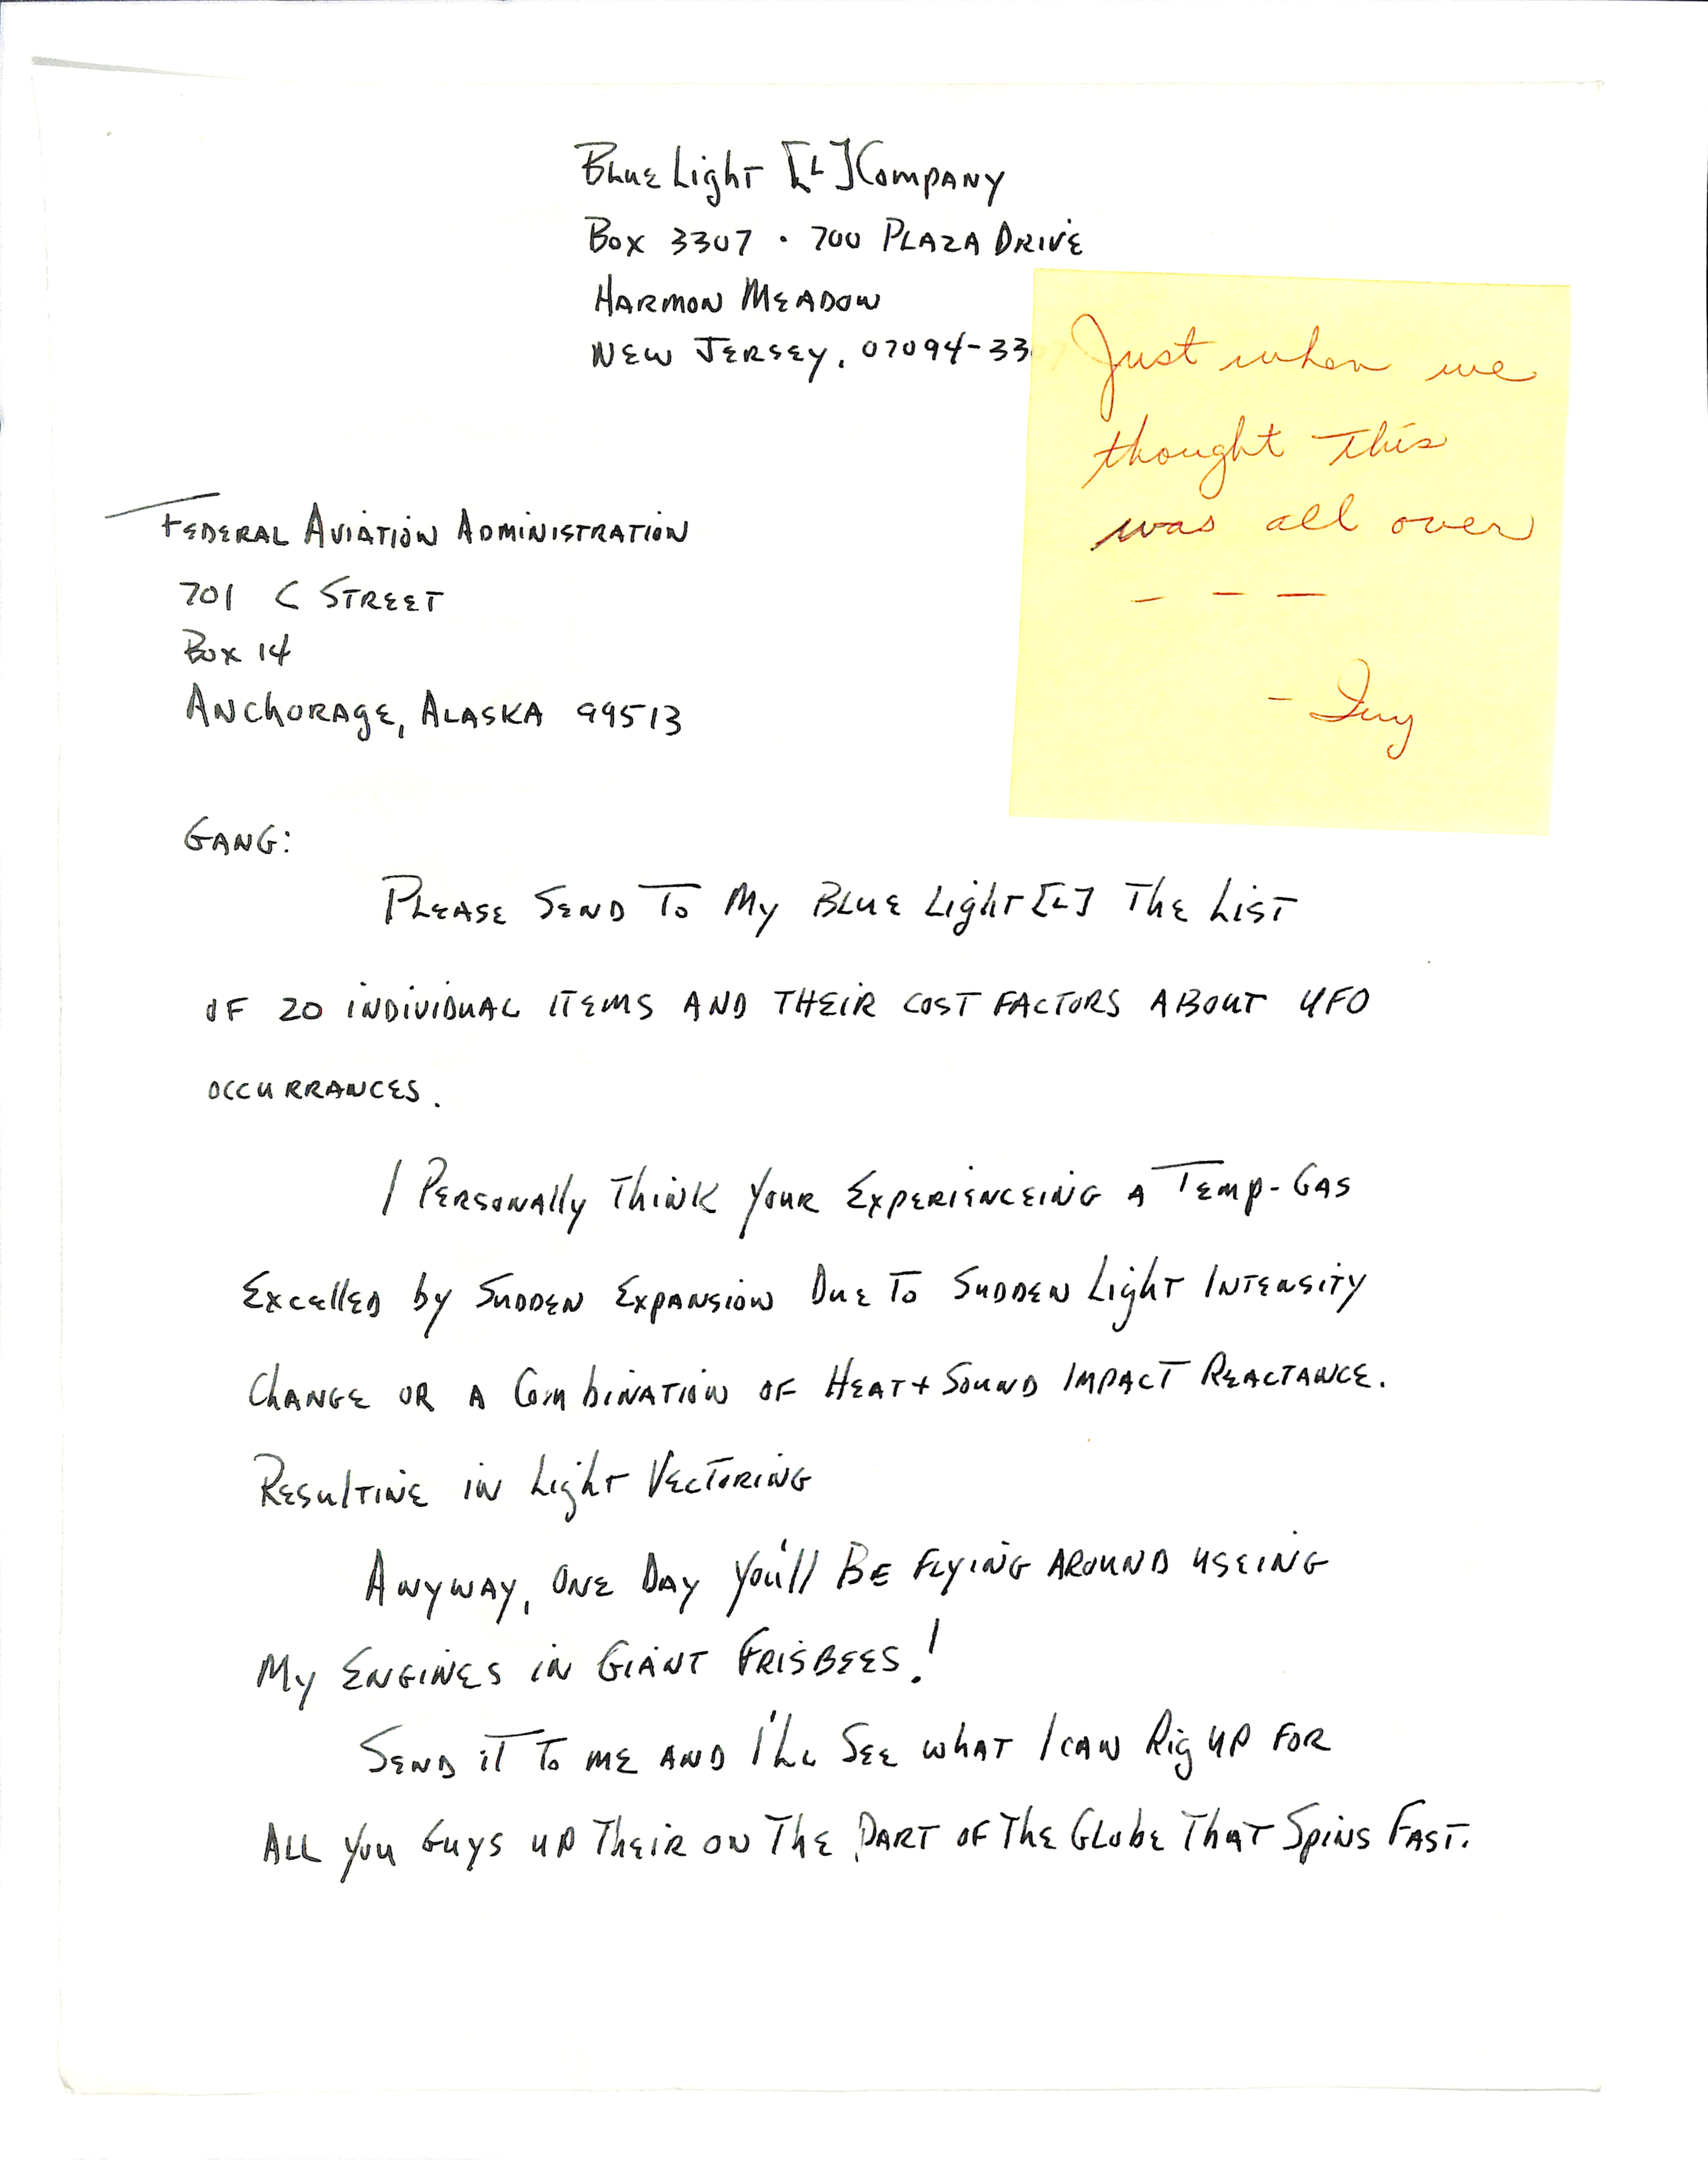 Blue Light [L] Company
Box 3307 · 700 Plaza Drive
Harmon Meadow
New Jersey, 07094-33
Just when we
thought this
was all over
- - -
Federal Aviation Administration
701 C Street
Box 14
Anchorage, Alaska 99513
Gang:
Please Send To My Blue Light [L] The List
of 20 individual items and their cost factors about UFO
occurrances.
I Personally Think Your Experienceing a Temp-Gas
Excelled by Sudden Expansion Due To Sudden Light Intensity
Change or a Combination of Heat + Sound Impact Reactance.
Resulting in Light Vectoring
Anyway, One Day You'll Be Flying Around useing
My Engines in Giant Frisbees!
Send it To me and I'll See what I can Rig up for
All you Guys up Their on The Part of The Globe That Spins Fast.